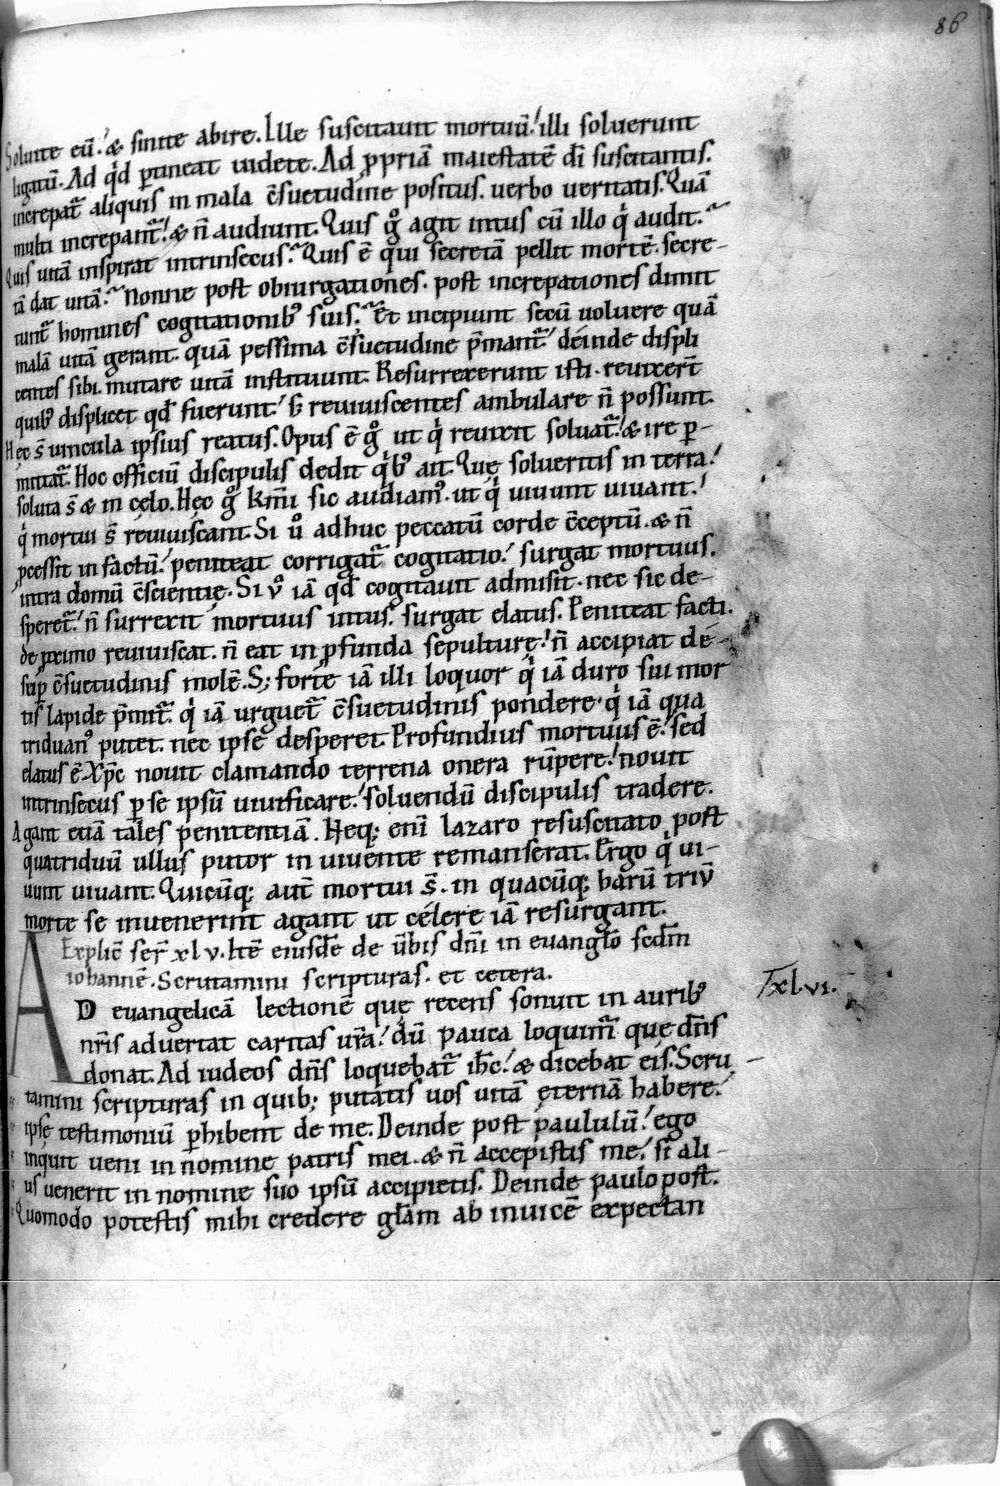 86
Soluite eū.' & sinite abire. Ille suscitauit mortuū.' illi soluerunt
ligatū. Ad qd̄ ꝑtineat uidete. Ad ꝓpriā maiestatē dī suscitantis.
increpat̄ aliquis in mala c̄suetudine positus. uerbo ueritatis. Quā
multi increpant̄.' & n̄ audiunt. Quis gͦ agit intus cū illo qͥ audit.
Quis uitā inspirat intrinsecus. Quis ē qui secretā pellit mortē. secre-
tā dat uitā. Nonne post obiurgationes. post increpationes dimit
tunt̄ homines cogitationibꝰ suis. Et incipiunt secū uoluere quā
malā uitā gerant. quā pessima c̄suetudine p̄mant̄.' deinde displi
centes sibi. mutare uitā instituunt. Resurrexerunt isti. reuixert̄
quibꝰ displicet qd̄ fuerunt.' s; reuiuiscentes ambulare n̄ possunt.
Hęc s̄ uincula ipsius reatus. Opus ē gͦ ut qͥ reuixit soluat̄.' & ire ꝑ-
mittat̄. Hoc officiū discipulis dedit qͥbꝰ ait. Quę solueritis in terra.'
soluta s̄ & in cęlo. Hęc gͦ km̄i sic audiamꝰ. ut qͥ uiuunt uiuant.'
qͥ mortui s̄ reuiuiscant. Si uͦ adhuc peccatū corde c̄ceptū. & n̄
ꝓcessit in factū.' peniteat corrigat̄ cogitatio.' surgat mortuus.
intra domū c̄scientię. Si vͦ iā qd̄ cogitauit admisit. nec sic de-
speret̄.' n̄ surrexit mortuus intus. surgat elatus. Peniteat facti.
de ꝓximo reuiuiscat. n̄ eat in ꝓfunda sepulturę.' n̄ accipiat de-
sup̄ c̄suetudinis molē. S; forte iā illi loquor qͥ iā duro sui mor
tis lapide p̄mit̄. qͥ iā urguet̄ c̄suetudinis pondere. qͥ iā qua
triduanꝰ putet. nec ipse desperet. Profundius mortuus ē.' sed
elatus ē. Xp̄c nouit clamando terrena onera rūpere.' nouit
intrinsecus ꝑ se ipsū uiuificare.' soluendū discipulis tradere.
Agant etiā tales penitentiā. Neq; enī lazaro resuscitato post
quatriduū ullus putor in uiuente remanserat. Ergo qͥ ui-
uunt uiuant. Quicūq; aut̄ mortui s̄. in quacūq; harū triū
morte se inuenerint agant ut celere iā resurgant.
Explic̄ ser̄ xl v. Itē eiusdē de ūbis dn̄i in euanglo scd̄m
iohannē. Scrutamini scripturas. et cetera.
AD euangelicā lectionē quę recens sonuit in auribꝰ
nr̄is aduertat caritas ur̄a.' dū pauca loquim̄ que dn̄s
donat. Ad iudeos dn̄s loquebat̄ ih̄c.' & dicebat eis. Scru
tamini scripturas in quib; putatis uos uitā ęternā habere.'
ipsę testimoniū ꝑhibent de me. Deinde post paululū.' ego
inquit ueni in nomine patris mei. & n̄ accepistis me.' si ali-
us uenerit in nomine suo ipsū accipietis. Deinde paulo post.
Quomodo potestis mihi credere gl̄am ab inuicē expectan
xl.vi.